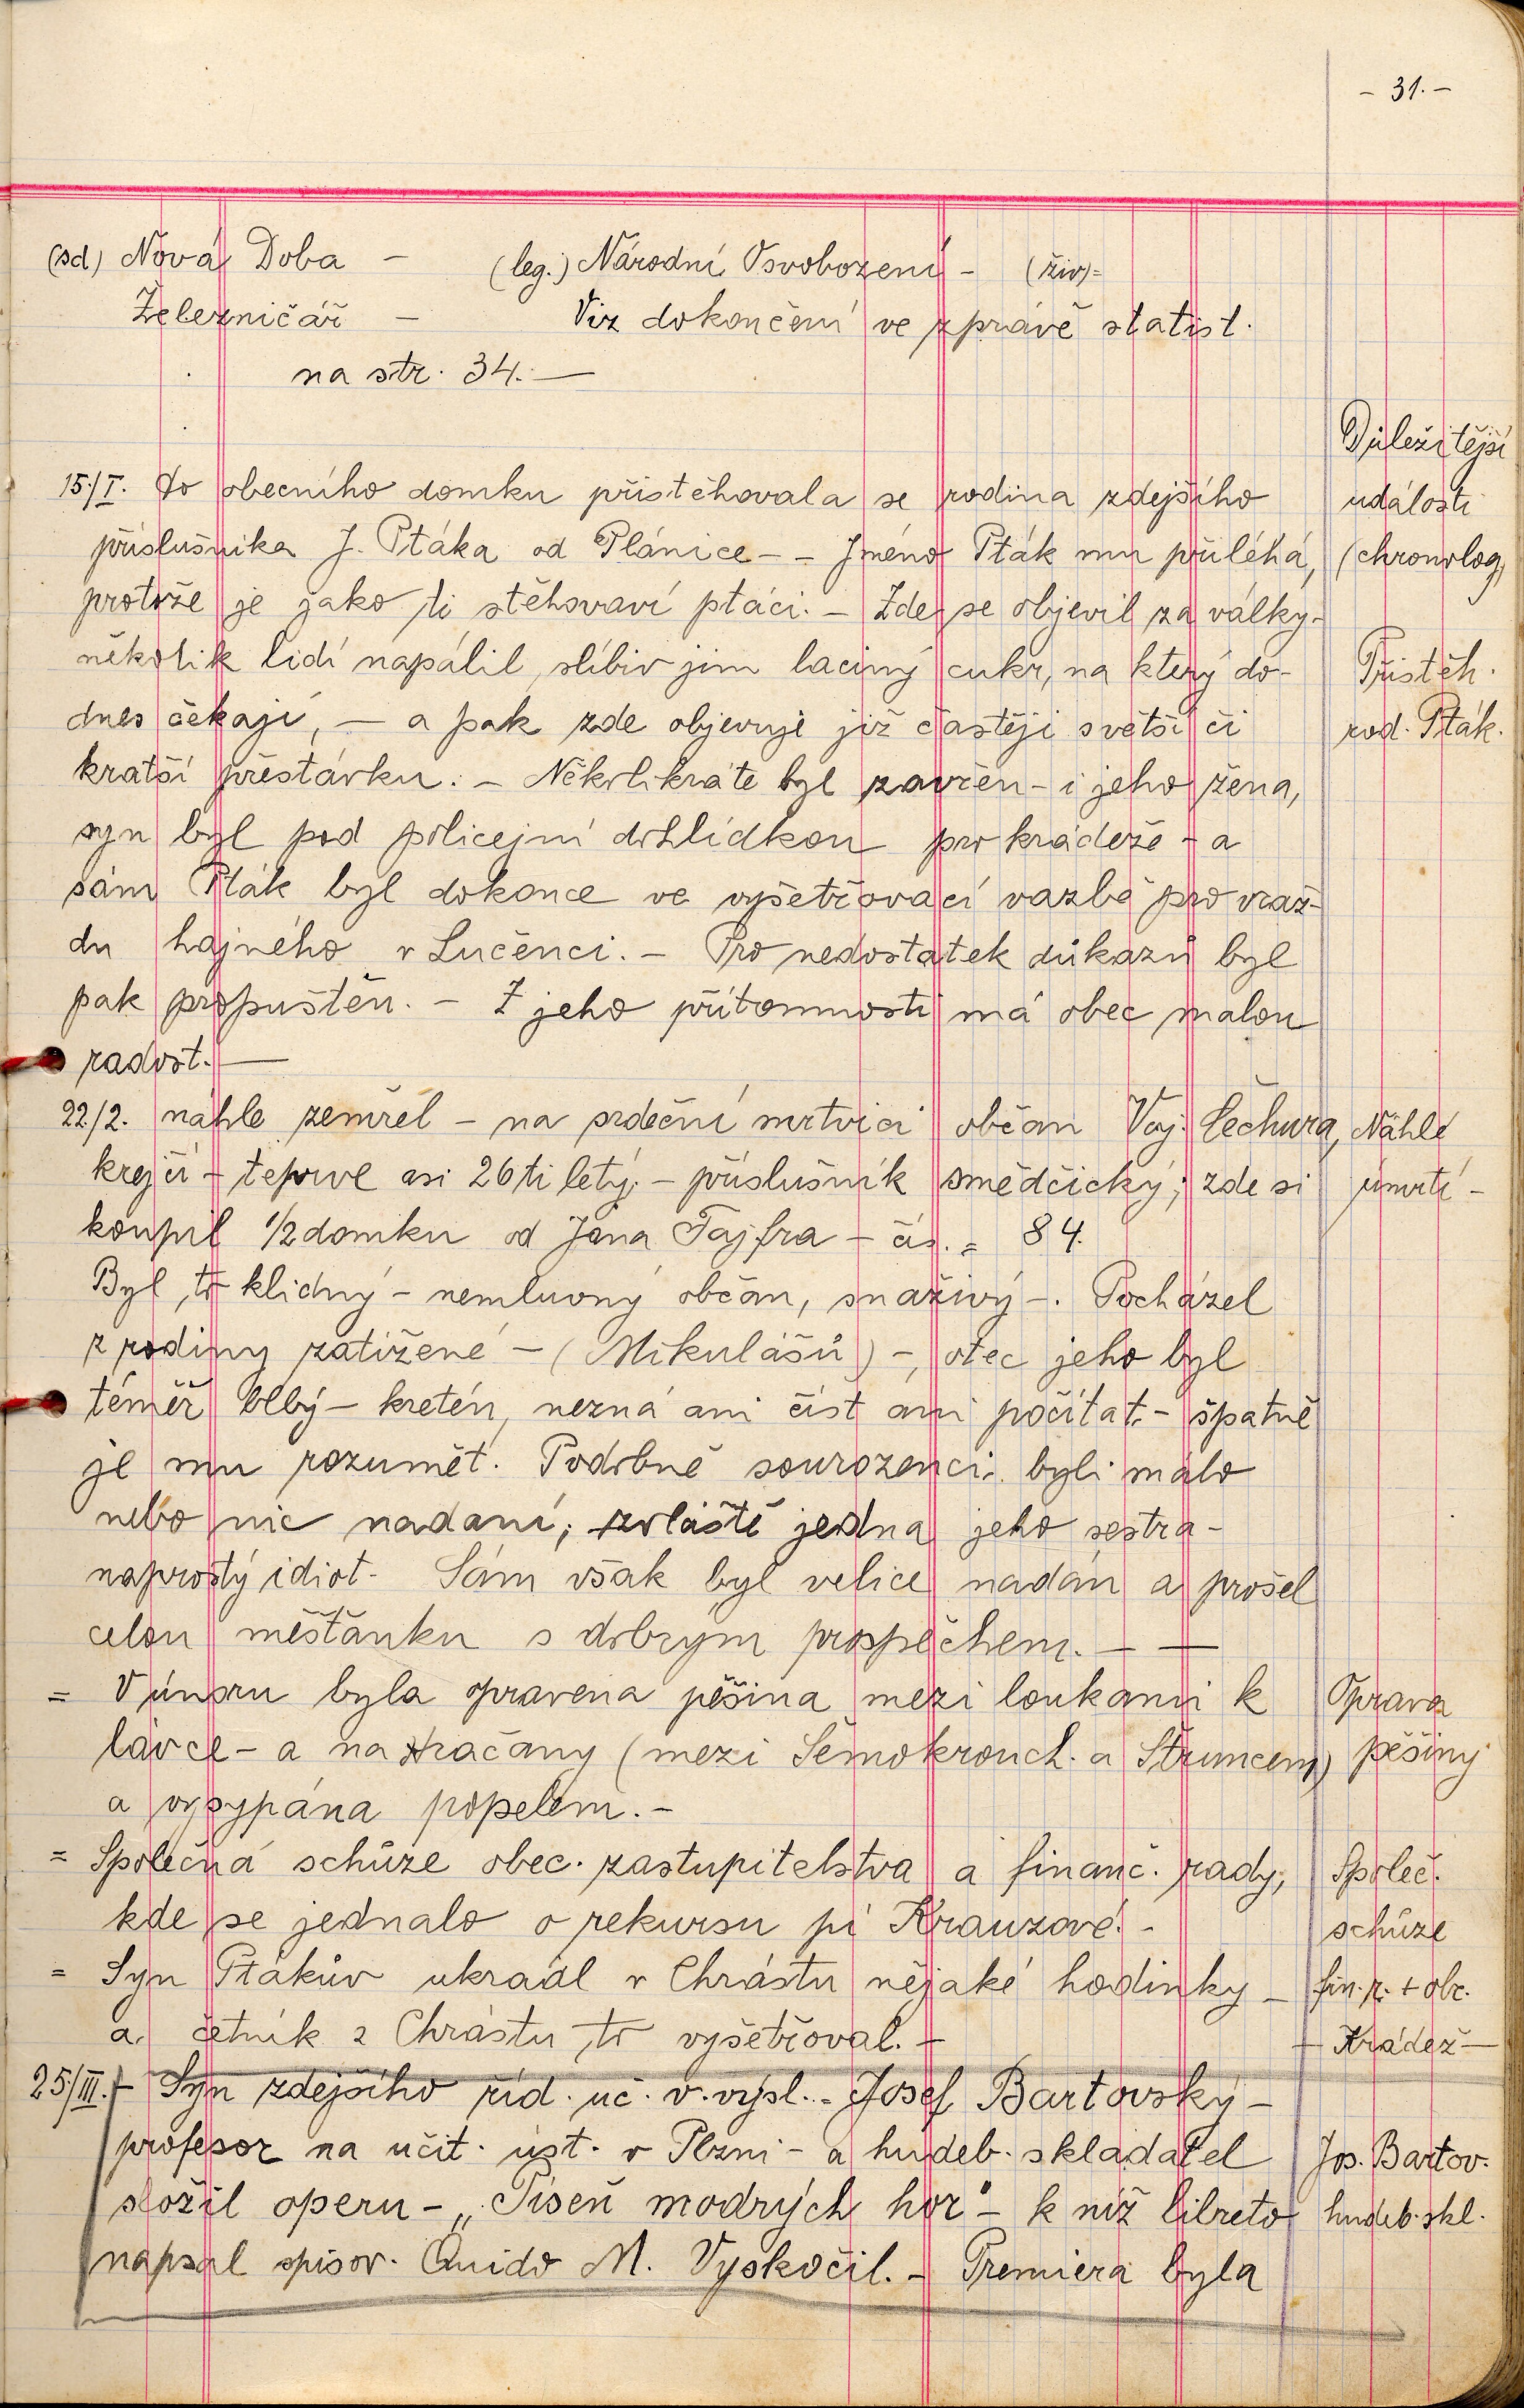 - 31. -
(sd) Nová Doba - (leg.) Národní Osvobození - (živ)=
Železničář - Viz dokončení ve zprávě statist.
na str. 34. —
Důležitější
15./I. Do obecního domku přistěhovala se rodina zdejšího události
příslušníka J. Ptáka od Plánice - - Jméno Pták mu přiléhá, (chronolog)
protože je jako ti stěhovaví ptáci. - Zde se objevil za války -
několik lidí napálil, slíbiv jim laciný cukr, na který do- Přistěh.
dnes čekají, — a pak zde objevuje již častěji s větší či rod. Pták.
kratší přestávku. - Několikráte byl zavřen - i jeho žena,
syn byl pod policejní dohlídkou pro krádeže - a
sám Pták byl dokonce ve vyšetřovací vazbě pro vraž-
du hajného v Lučenci. - Pro nedostatek důkazů byl
pak propuštěn. - Z jeho přítomnosti má obec malou
radost. —
22./2. náhle zemřel - na srdeční mrtvici občan Voj. Čechura, Náhlé
krejčí - teprve asi 26ti letý. - příslušník smědčický; zde si úmrtí -
koupil 1/2 domku od Jana Tajfra - čís. = 84.
Byl to klidný - nemluvný občan, snaživý -. Pocházel
z rodiny zatížené - (Mikulášů) -, otec jeho byl
téměř blbý - kretén, nezná ani číst ani počítat. - špatně
je mu rozumět. Podobně sourozenci byli málo
nebo nic nadaní; zvláště jedna jeho sestra -
naprostý idiot. Sám však byl velice nadán a prošel
celou měšťanku s dobrým prospěchem. — —
= V únoru byla opravena pěšina mezi loukami k Oprava
lávce - a na Hračany (mezi Šemokrouch. a Štruncem) pěšiny
a vysypána popelem. -
= Společná schůze obec. zastupitelstva a finanč. rady, Společ.
kde se jednalo o rekursu pí Krauzové. - schůze
= Syn Ptákův ukradl v Chrástu nějaké hodinky - fin. r. + obc.
a četník z Chrástu to vyšetřoval. - - Krádež -
25/III. - Syn zdejšího říd. uč. v. výsl. - Josef Bartovský -
profesor na učit. úst. v Plzni - a hudeb. skladatel Jos. Bartov.
složil operu - „Píseň modrých hor" - k níž libreto hudeb. skl.
napsal spisov. Quido M. Vyskočil. - Premiera byla